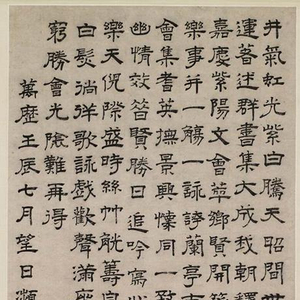 井氣虹光紫白騰天昭閒世
運著述群書集大成我朝釋
嘉慶紫陽文會萃鄉賢開
樂事并一觴一詠誇蘭亭
會集耆英撫景興懷同一
幽情效昔賢勝日追吟寫
樂天倪際盛時絲竹觥籌
白髮徜徉歌詠戲歡聲滿座
窮勝會光陰難再得
萬歷壬辰七月望日